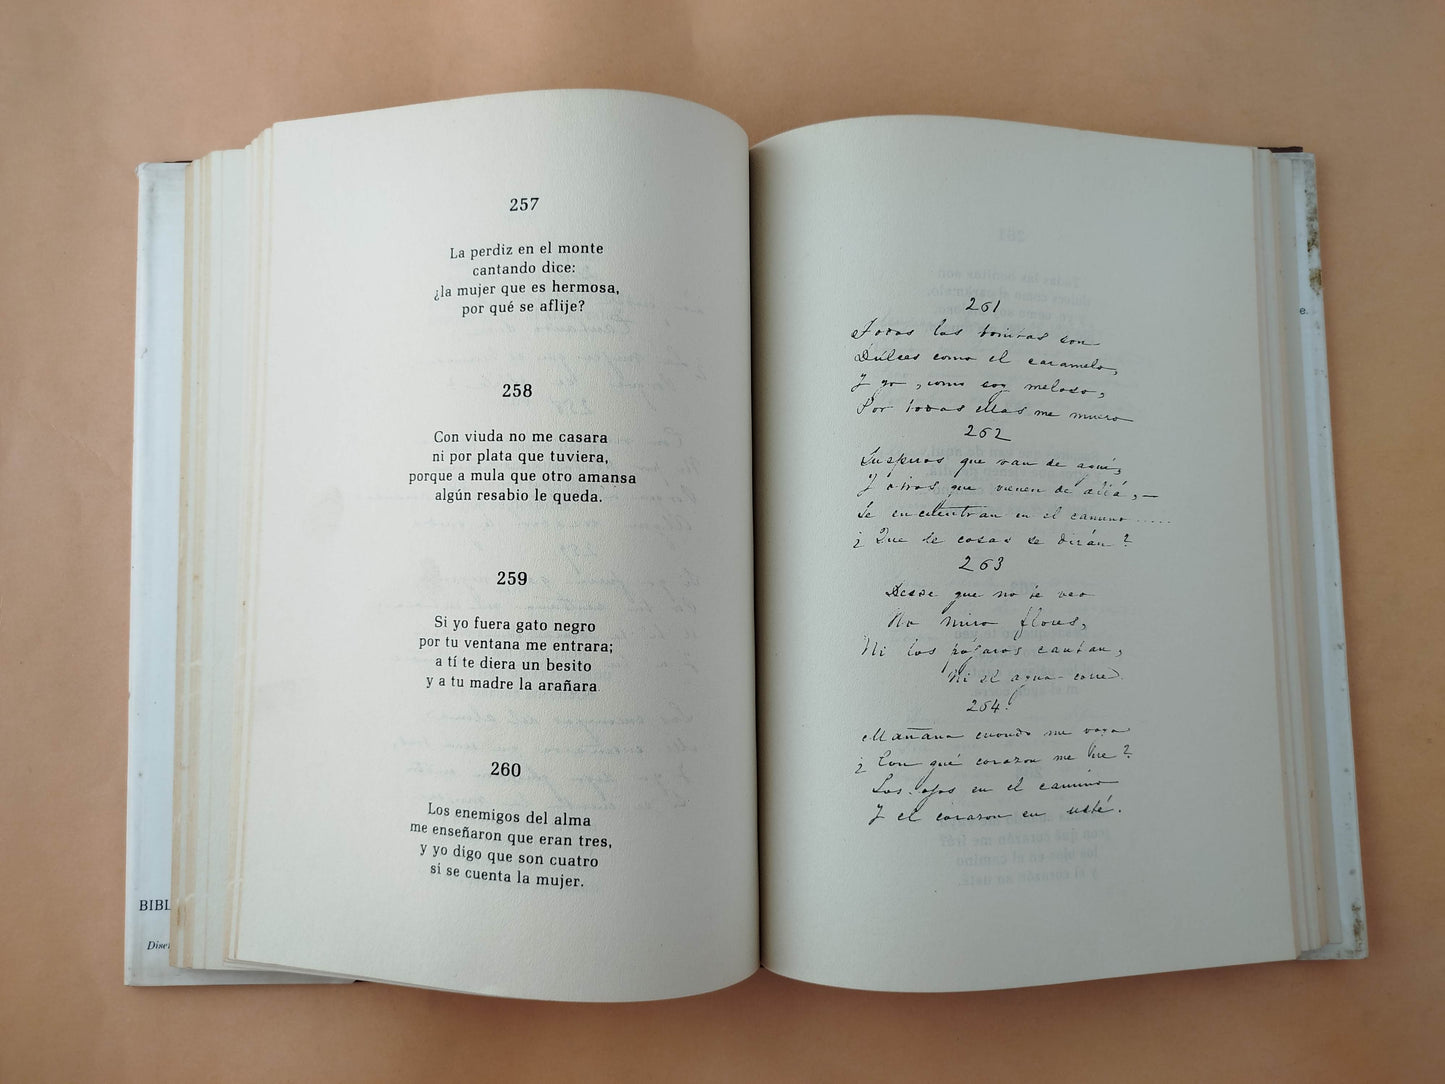 257
La perdiz en el monte
cantando dice:
¿la mujer que es hermosa,
por qué se aflije?
258
Con viuda no me casara
ni por plata que tuviera,
porque a mula que otro amansa
algún resabio le queda.
259
Si yo fuera gato negro
por tu ventana me entrara;
a tí te diera un besito
y a tu madre la arañara
260
Los enemigos del alma
me enseñaron que eran tres,
y yo digo que son cuatro
si se cuenta la mujer.
BIBL
Dise
261
Todas las bonitas son
Dúlces como el caramelo,
Y yo, como soy meloso,
Por todas ellas me muero
262
Suspiros que van de aquí,
Y otros que vienen de allá, —
Se encuentran en el camino.....
¿Que de cosas se dirán?
263
Desde que no te veo
No miro flores,
Ni los pájaros cantan,
Ni el agua corre.
264.
Mañana cuando me vaya
¿Con qué corazon me iré?
Los ojos en el camino
Y el corazon en usté.
e.